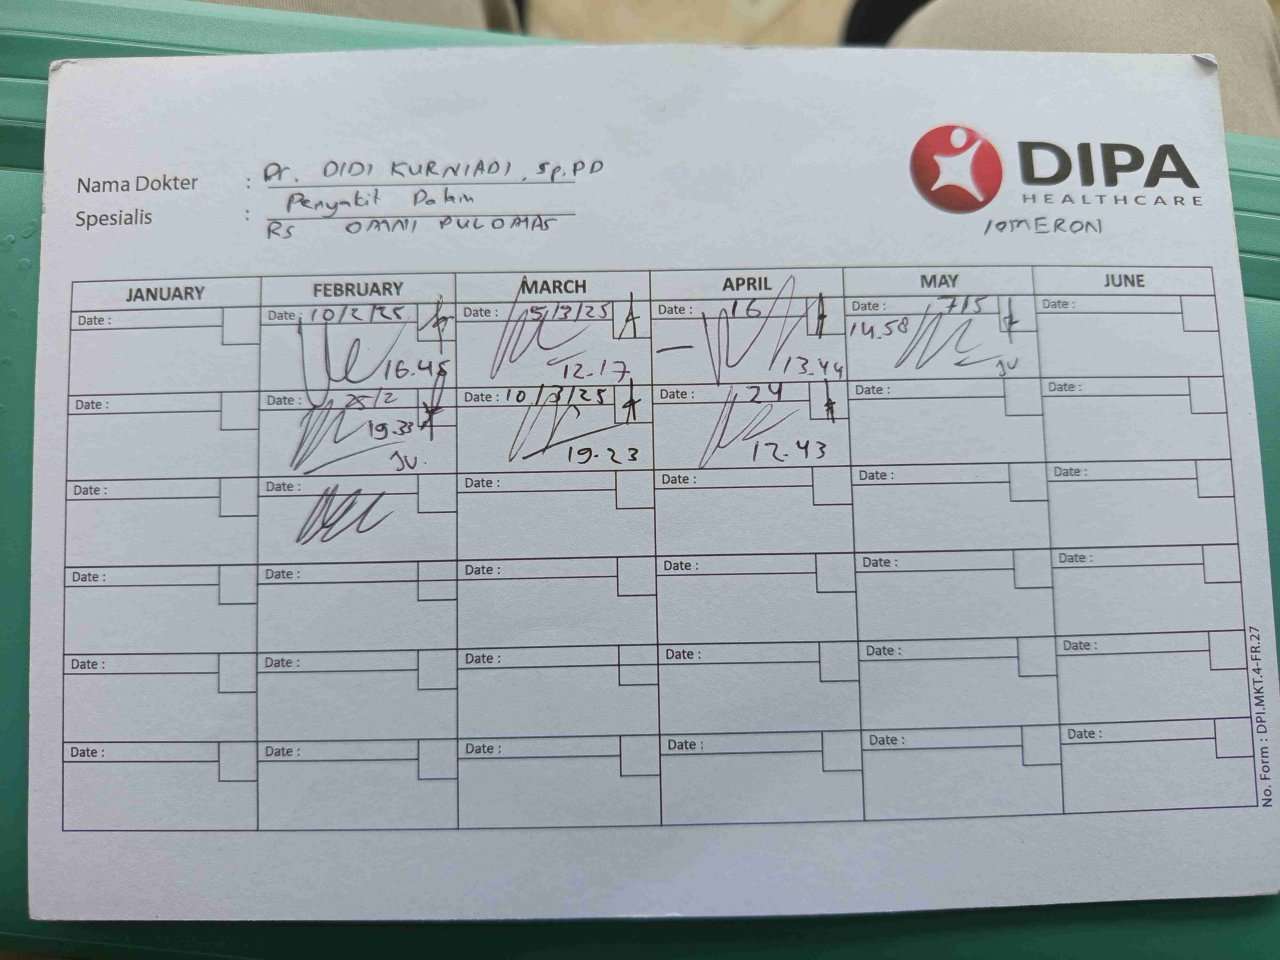 DIPA
HEALTHCARE
IOMERON
Nama Dokter : Dr. DIDI KURNIADI, Sp.PD
Spesialis : Penyakit Dalam
RS OMNI PULOMAS
JANUARY FEBRUARY MARCH APRIL MAY JUNE
Date : Date : 10/2/25 Date : 5/3/25 Date : 16 Date : 7/5 Date :
16.45 12.17 13.44 14.58 JV
Date : Date : 25/2 Date : 10/3/25 Date : 24 Date : Date :
19.33 JV. 19.23 12.43
Date : Date : Date : Date : Date : Date :
Date : Date : Date : Date : Date : Date :
Date : Date : Date : Date : Date : Date :
Date : Date : Date : Date : Date : Date :
No. Form : DPI.MKT.4-FR.27